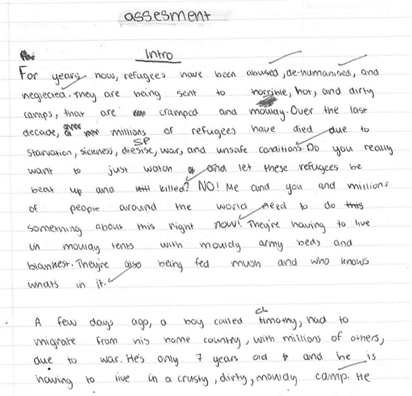 assesment
Intro
For years now, refugees have been abused, de-humanised, and
neglected. They are being sent to horrible, hot, and dirty
camps, that are cramped and mouldy. Over the last
decade, millions of refugees have died due to
SP
starvation, sickness, diesise, war, and unsafe conditions. Do you really
want to just watch and let these refugees be
beat up and killed? NO! Me and you and millions
of people around the world need to do
something about this right now! They're having to live
in mouldy tents with mouldy army beds and
blankest. They're also being fed mush and who knows
whats in it.
CL
A few days ago, a boy called timothy, had to
migrate from his home country, with millions of others,
due to war. He's only 7 years old and he is
having to live in a crusty, dirty, mouldy camp. He